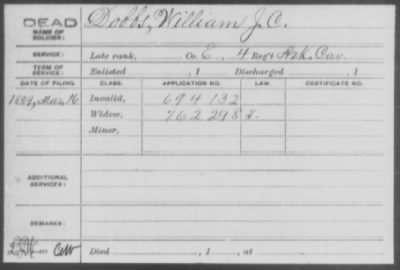 DEAD
NAME OF SOLDIER:
Dobbs, William J. C.
SERVICE:
Late rank, Co. E, 4 Reg't Ark. Cav.
TERM OF SERVICE:
Enlisted , 1 Discharged , 1
DATE OF FILING. CLASS. APPLICATION NO. LAW. CERTIFICATE NO.
1889, Mar. 16 Invalid, 694132
Widow, 762298
Minor,
ADDITIONAL SERVICES:
REMARKS:
Died , 1 , at